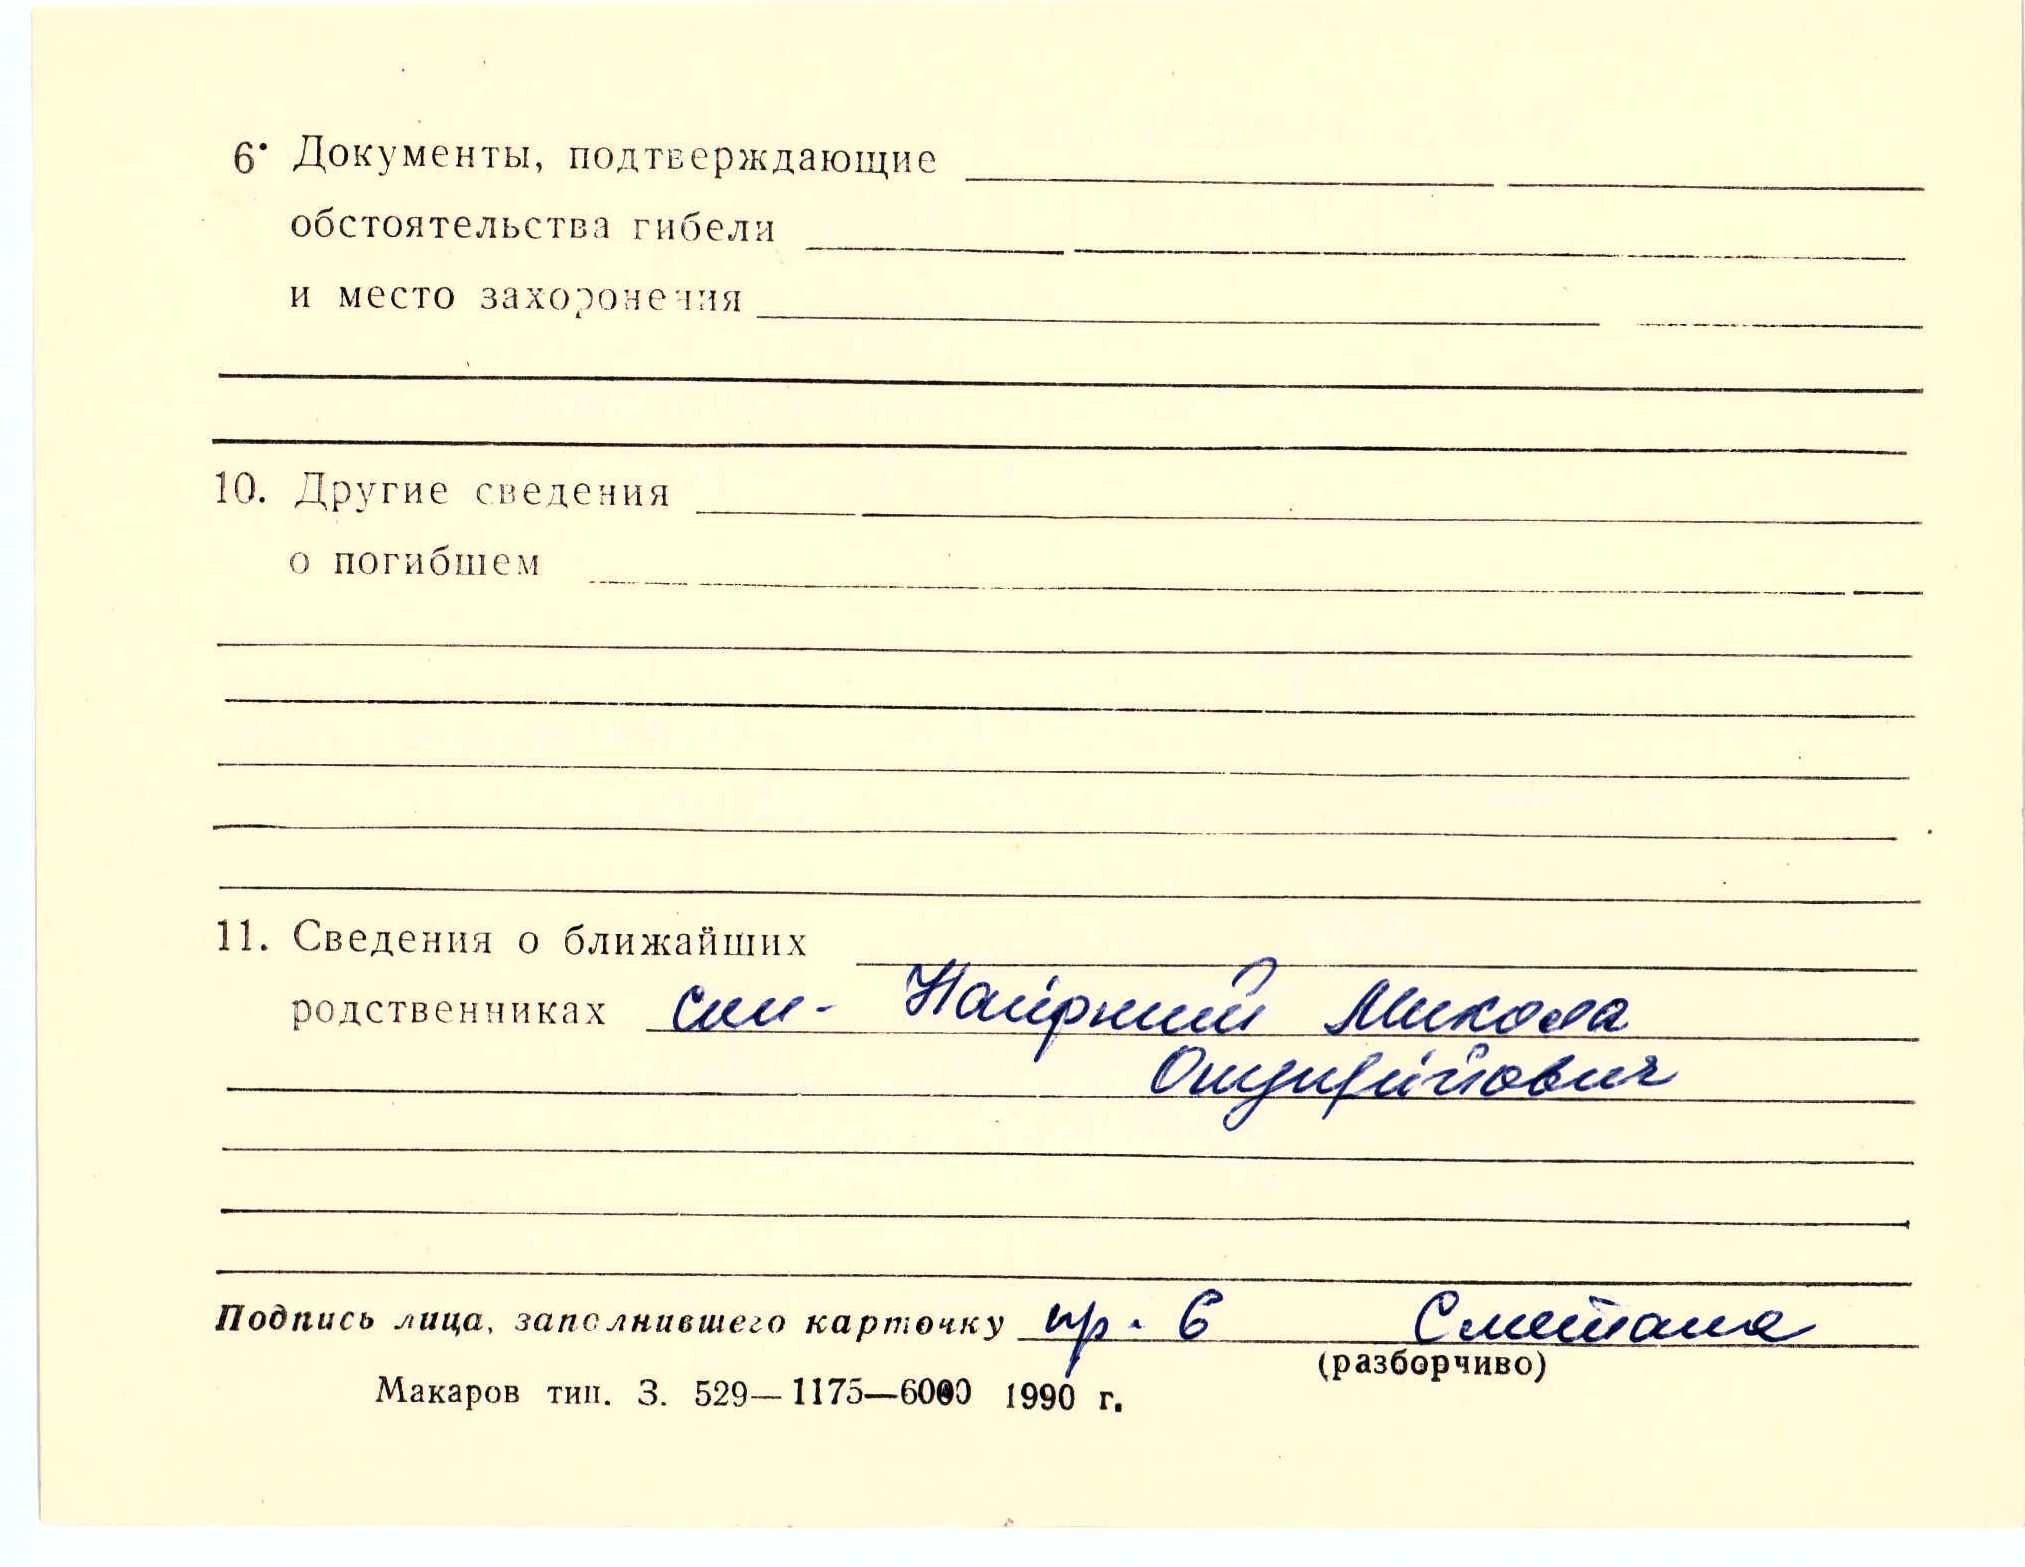 6. Документы, подтверждающие
обстоятельства гибели
и место захоронения
10. Другие сведения
о погибшем
11. Сведения о ближайших
родственниках син - Наірний Микола
Онуфрійович
Подпись лица, заполнившего карточку пр. 6 Сметана
(разборчиво)
Макаров тип. З. 529—1175—6000 1990 г.